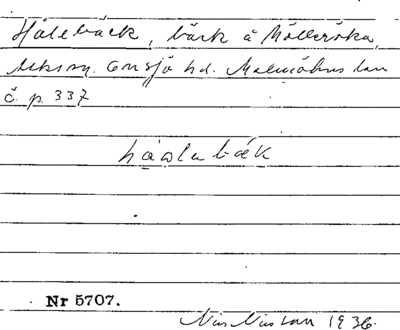 Hålebäck, bäck å Möllerska,
utksm. Onsjö hd. Malmöhus län
č. p. 337
håalabäk
Nr 5707.
Nils Nilsson 1936